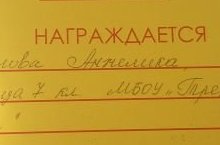 НАГРАЖДАЕТСЯ
ова Анжелика,
ца 7 кл. МБОУ „Тре
"